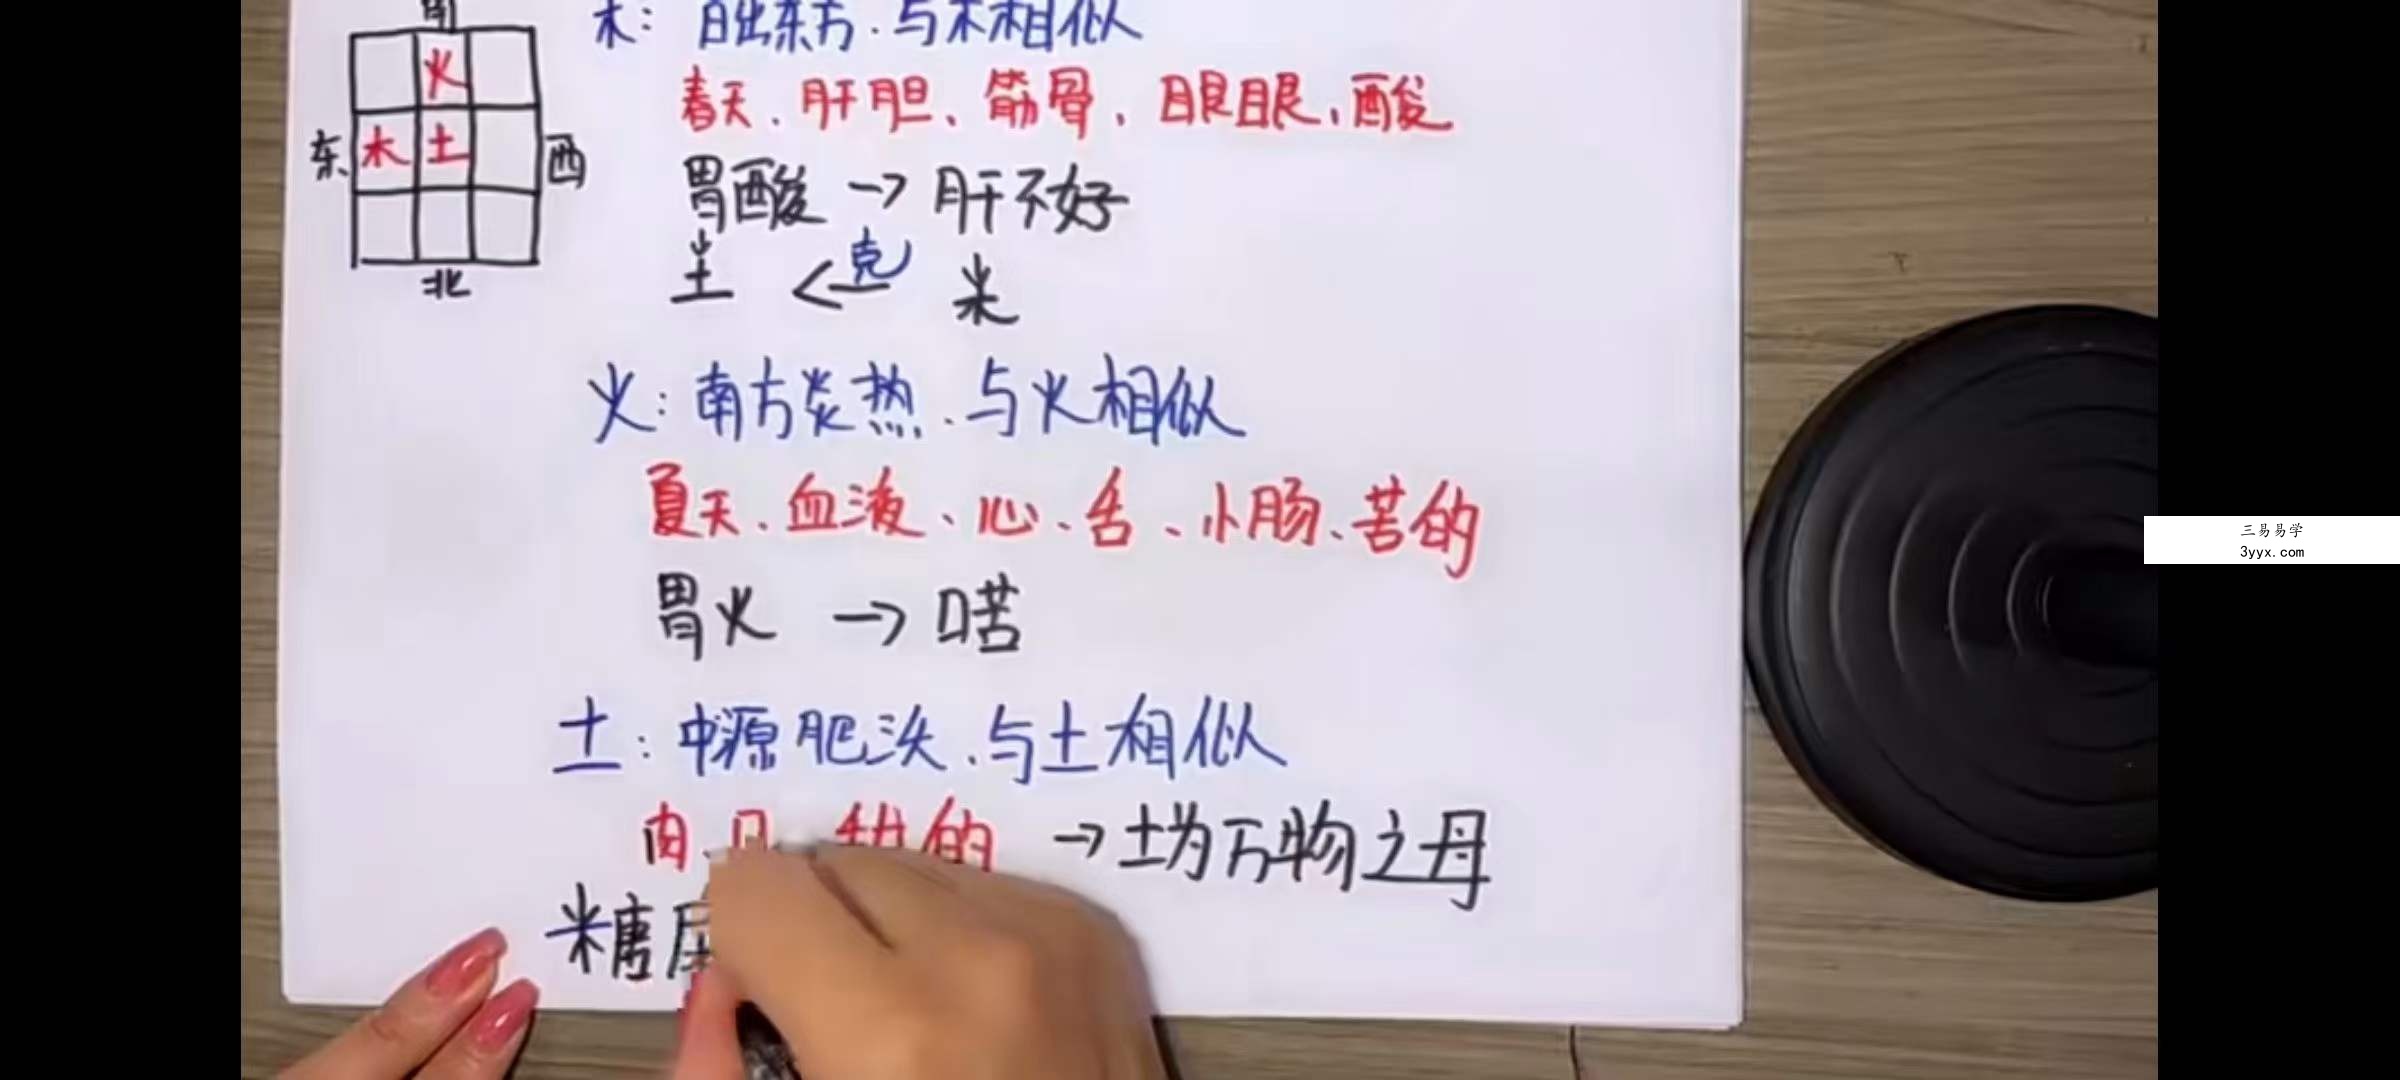 南
火
东 木 土 西
北
木：日出东方.与木相似
春天、肝胆、筋骨、眼眼、酸
胃酸 → 肝不好
土 ←克 木
火：南方炎热.与火相似
夏天、血液、心、舌、小肠、苦的
胃火 → 口苦
土：中源肥沃.与土相似
肉、 甜的 → 土为万物之母
糖尿
三易易学
3yyx.com